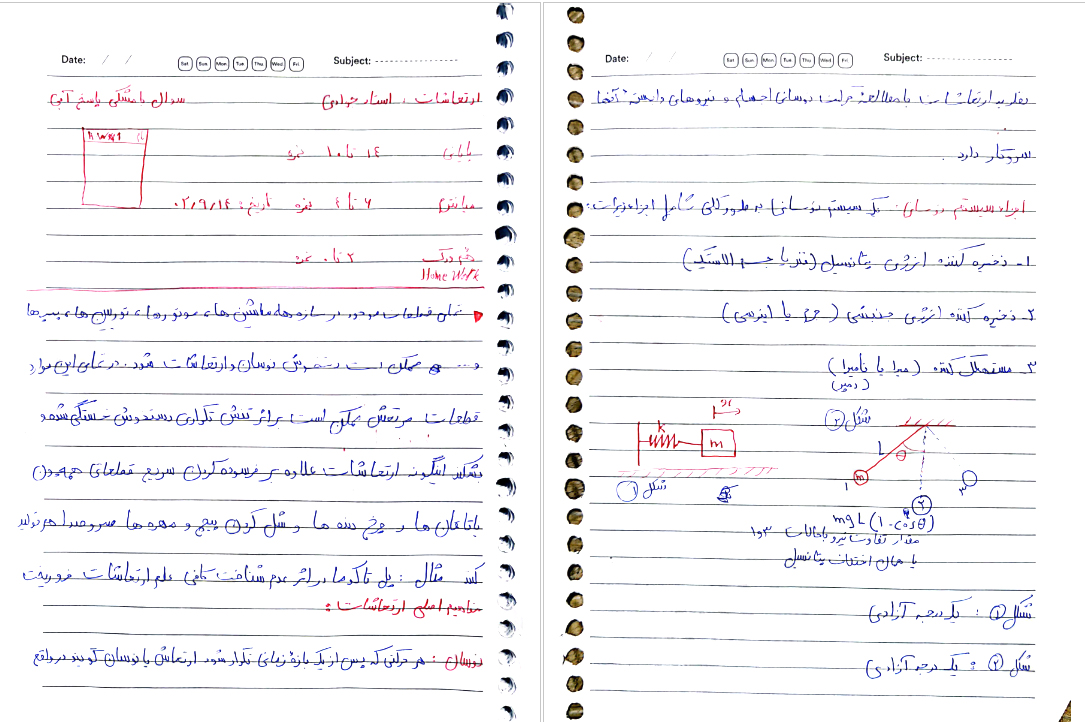 Date: / / Sat Sun Mon Tue Thu Wed Fri Subject:
ارتعاشات ، استاد جوادی سوال با مشکی پاسخ آبی
HW#1
پایانی ۱۴ تا ۱۰ نمره
میانترم ۶ تا ۴ نمره تاریخ: ۰۲/۹/۱۴
هم ورک ۲ تا ۰ نمره
Home Work
تمامی قطعات موجود در سازه ها، ماشین ها، موتورها، توربین ها، پمپ ها
و ... ممکن است دستخوش نوسان و ارتعاشات شود. در تمامی این موارد
قطعات مرتعش ممکن است براثر تنش تکراری دستخوش خستگی شده و
بشکند اینگونه ارتعاشات علاوه بر فرسوده کردن سریع قطعاتی همچون
یاتاقان ها و چرخ دنده ها و شل کردن پیچ و مهره ها سروصدا هم تولید
کند مثال : پل تاکوما دراثر عدم شناخت کافی علم ارتعاشات فروریخت
مفاهیم اصلی ارتعاشات :
نوسان : هر حرکتی که پس از یک بازهٔ زمانی تکرار شود ارتعاش یا نوسان گویند در واقع
Date: / / Sat Sun Mon Tue Thu Wed Fri Subject:
نظریه ارتعاشات با مطالعهٔ حرکت نوسانی اجسام و نیروهای وابسته به آنها
سروکار دارد .
اجزاء سیستم نوسانی: یک سیستم نوسانی به طور کلی شامل اجزاء زیرات:
۱- ذخیره کننده انرژی پتانسیل (فنر یا جسم الاستیک)
۲- ذخیره کننده انرژی جنبشی ( جرم یا اینرسی)
۳- مستهلک کننده (میرا یا نامیرا)
(دمپر)
x
k
m
شکل ①
شکل ②
L
θ
m
۱
۲
۳
mgL(1-cosθ)
مقدار تفاوت نیرو با حالات ۳ و ۱
یا همان اختلاف پتانسیل
شکل ① : یک درجه آزادی
شکل ② : یک درجه آزادی